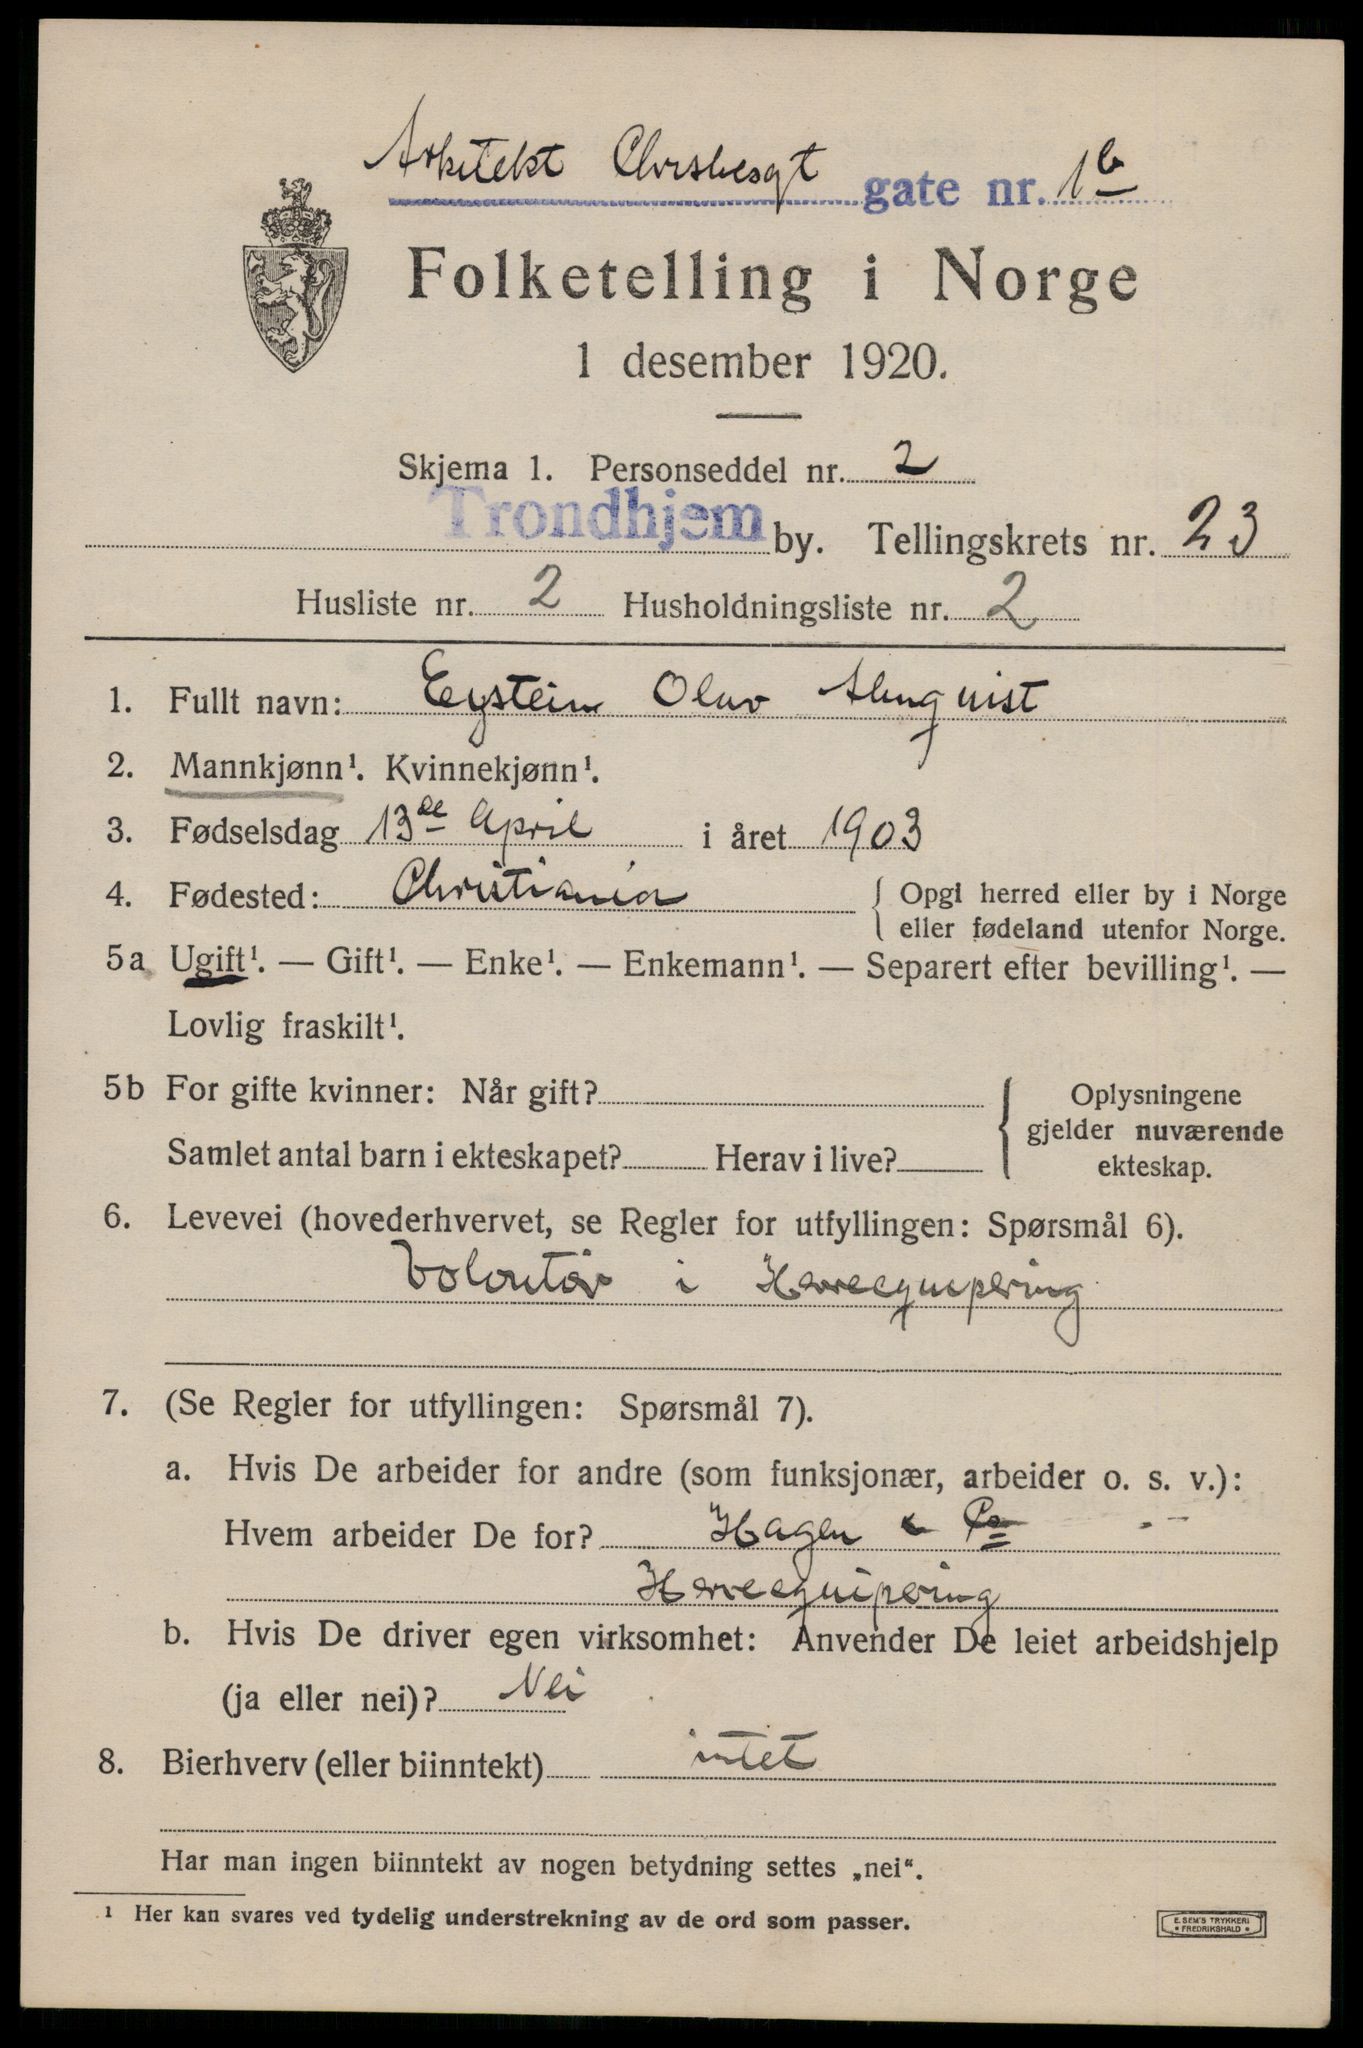 Arkitekt Christiesgt gate nr. 1b
Folketelling i Norge
1 desember 1920.
Skjema 1. Personseddel nr. 2
Trondhjem by. Tellingskrets nr. 23
Husliste nr. 2 Husholdningsliste nr. 2
1. Fullt navn: Eystein Olav Almquist
2. Mannkjønn¹. Kvinnekjønn¹.
3. Fødselsdag 13de April i året 1903
4. Fødested: Christiania { Opgi herred eller by i Norge
eller fødeland utenfor Norge.
5a Ugift¹. — Gift¹. — Enke¹. — Enkemann¹. — Separert efter bevilling¹. —
Lovlig fraskilt¹.
5b For gifte kvinner: Når gift? { Oplysningene
gjelder nuværende
Samlet antal barn i ekteskapet? Herav i live?
ekteskap.
6. Levevei (hovederhvervet, se Regler for utfyllingen: Spørsmål 6).
Volontør i Herreequipering
7. (Se Regler for utfyllingen: Spørsmål 7).
a. Hvis De arbeider for andre (som funksjonær, arbeider o. s. v.):
Hvem arbeider De for? Hagen & Co
Herreequipering
b. Hvis De driver egen virksomhet: Anvender De leiet arbeidshjelp
(ja eller nei)? Nei
8. Bierhverv (eller biinntekt) intet
Har man ingen biinntekt av nogen betydning settes „nei“.
¹ Her kan svares ved tydelig understrekning av de ord som passer.
E. SEM'S TRYKKERI
• FREDRIKSHALD •